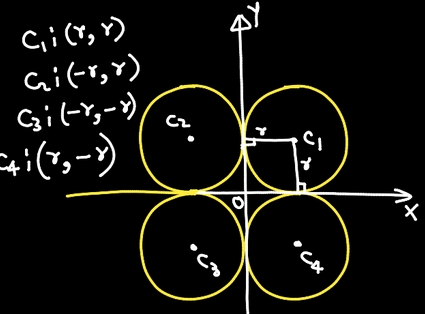 C₁ ; (r, r)
C₂ ; (-r, r)
C₃ ; (-r, -r)
C₄ ; (r, -r)
Y
C₂
r
C₁
r
O
X
C₃
C₄